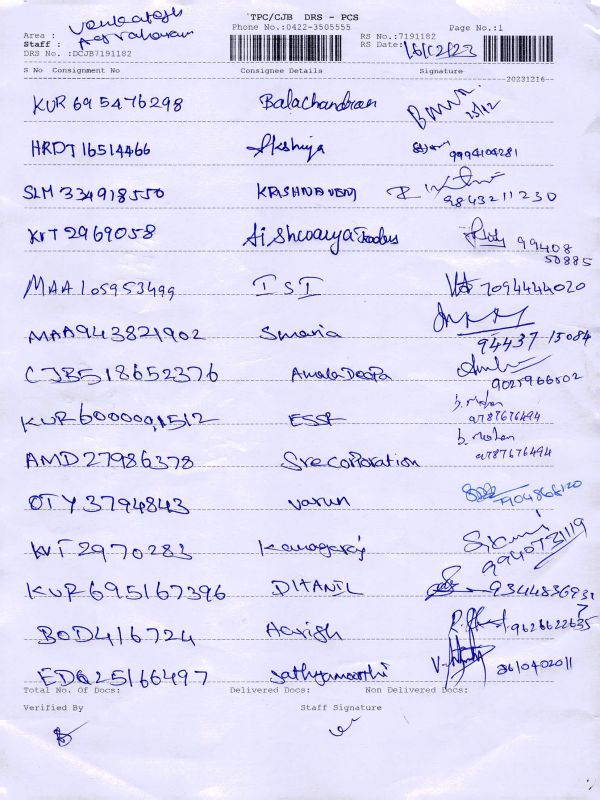 TPC/CJB DRS - PCS
Phone No.:0422-3505555 Page No.:1
Area : Venkatesh RS No.:7191182
Staff : Agraharam RS Date: 16/12/23
DRS No. :DCJB7191182
S No Consignment No Consignee Details Signature
20231216
KUR 695476298 Balachandran 25/12
HRDT 16514466 Akshiya 9994104281
SLM 334918550 KRISHNAVENI 9843211230
KVT 2969058 Aishwarya Traders 99408
50885
MAA105953499 ISI 7094444020
MAA943821902 Smaria 94437 15084
CJB518652376 Amala Deepa 9025966502
KUR6000001512 ESSF b. Mohan
9787676494
AMD27986378 Sree Corporation b. Mohan
9787676494
OTY3794843 Varun
KVT2970283 Kanagaraj 9940731119
KUR695167396 DITANIL 934483693
BOD416724 Aarish 9626622635
EDQ25166497 Sathyamoorthi
Total No. Of Docs: Delivered Docs: Non Delivered Docs:
Verified By Staff Signature